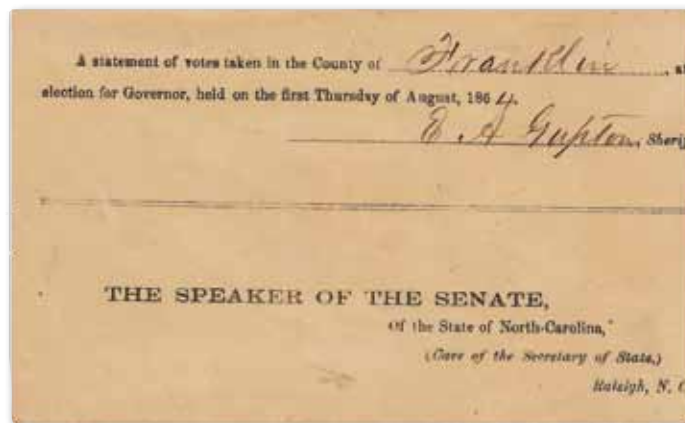 A statement of votes taken in the County of Franklin, at
election for Governor, held on the first Thursday of August, 1864.
E. A Gupton, Sherif
THE SPEAKER OF THE SENATE,
Of the State of North-Carolina,
(Care of the Secretary of State,)
Raleigh, N. C